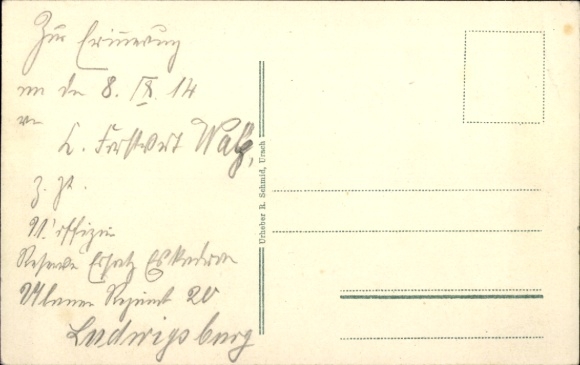 Zur Erinnerung
an den 8. IX. 14
von
K. Forstwart Walz,
z. Zt.
U'offizier
Reserve Ersatz Eskadron
Ulanen Regiment 20
Ludwigsburg
Urheber R. Schmid, Urach